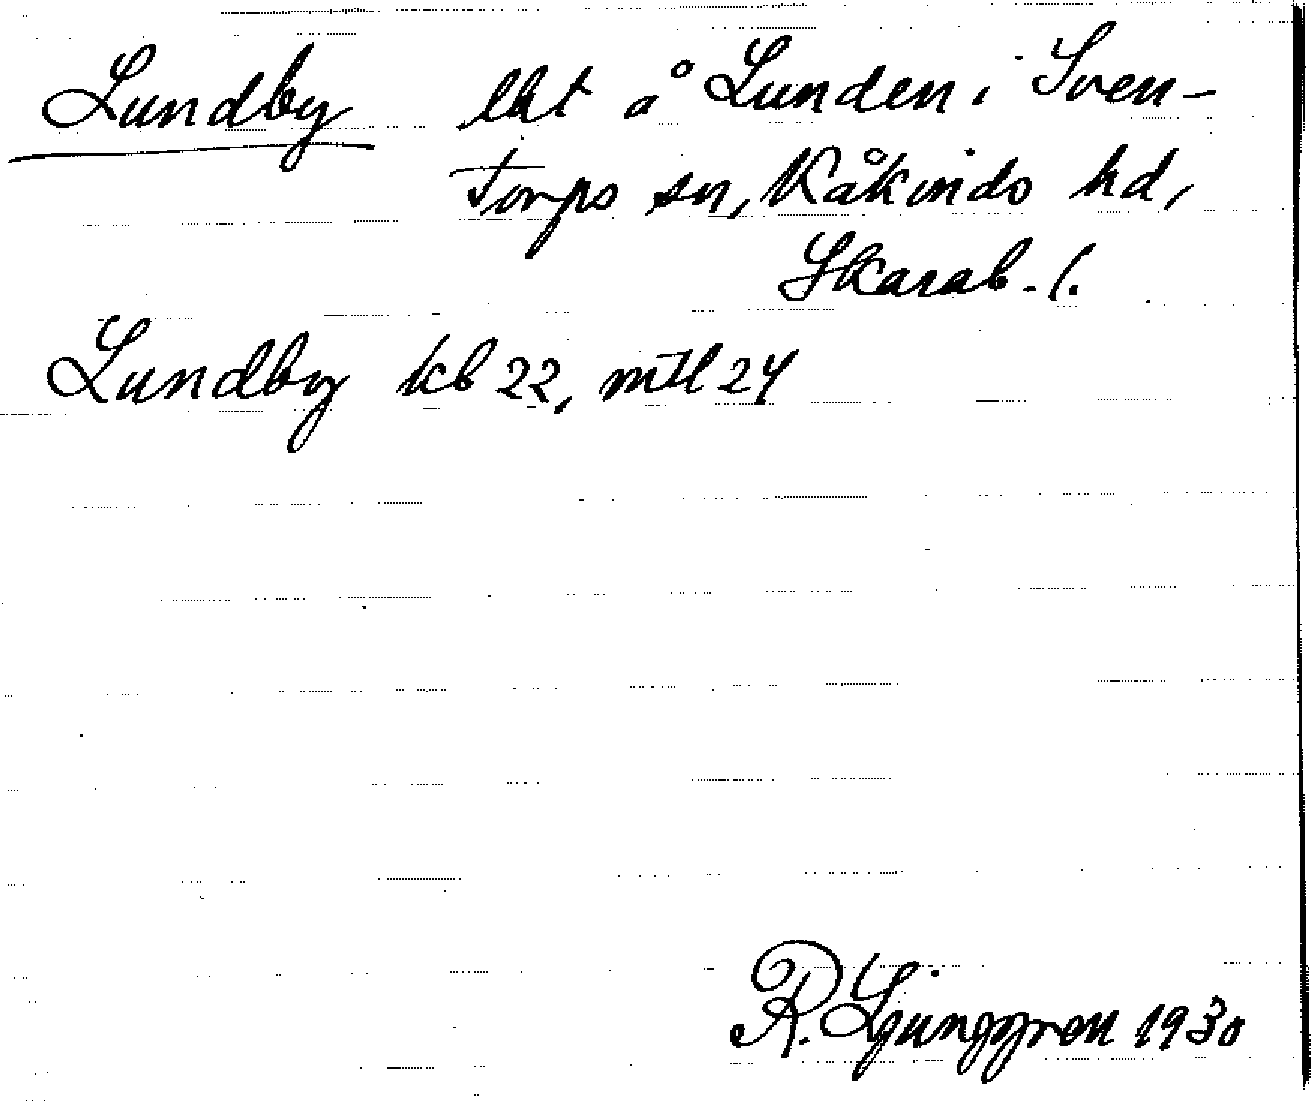 Lundby lht å Lunden i Sven-
torps sn, Kåkinds hd,
Skarab. l.
Lundby kb 22, mtl 24
R. Ljunggren 1930